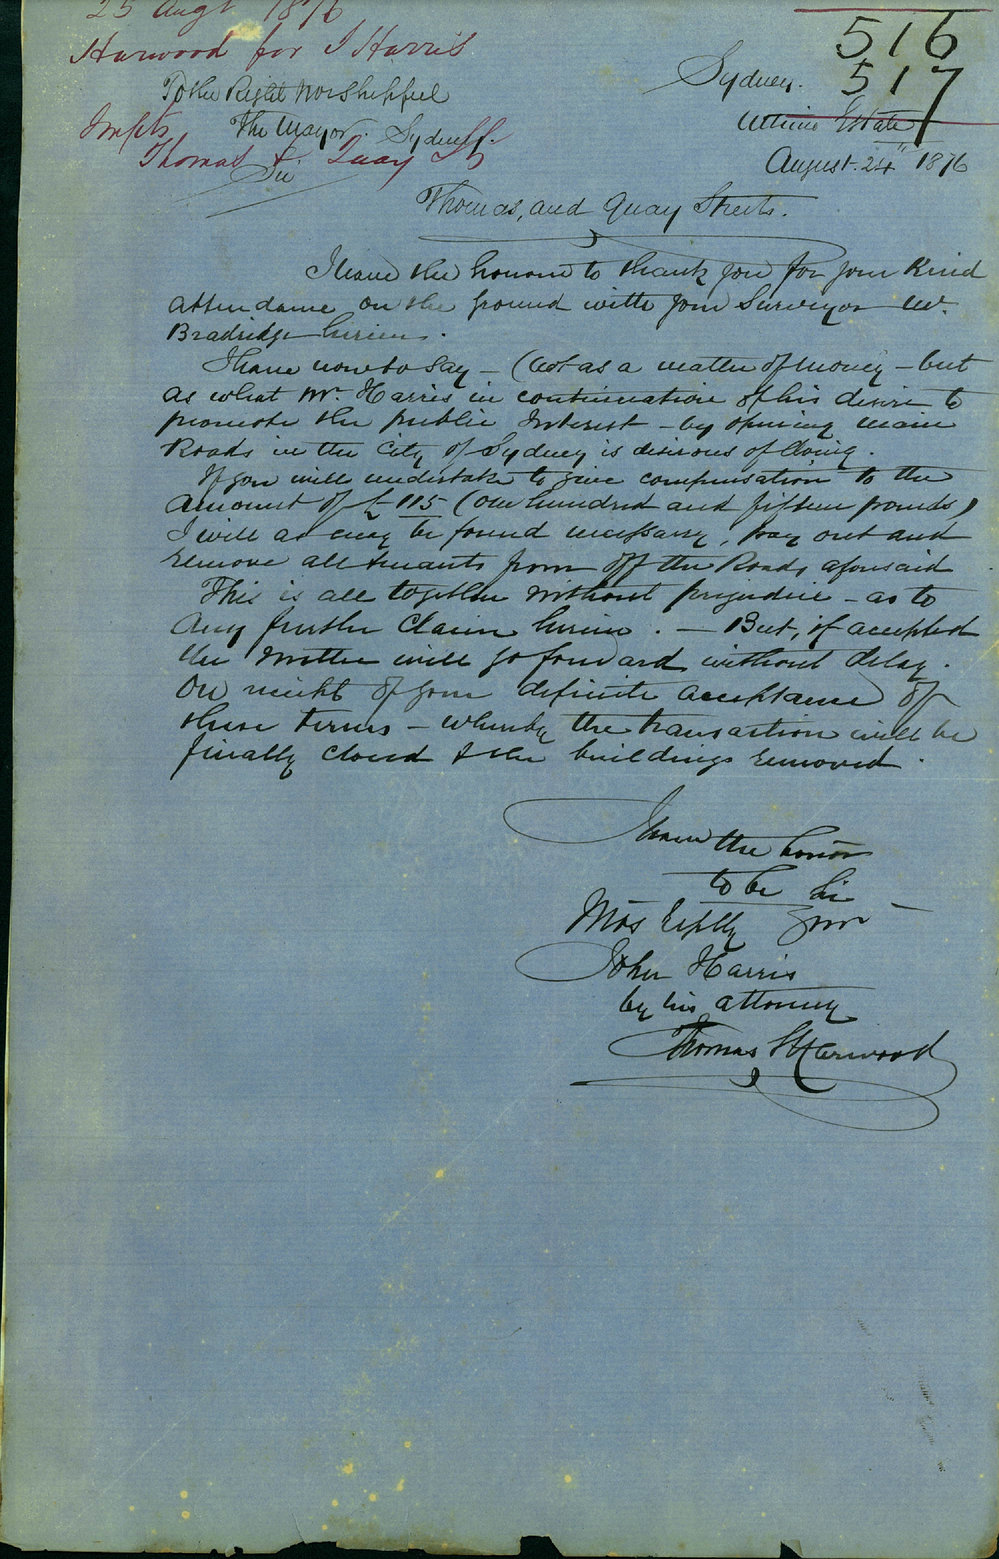 25 Augt 1876
Harwood for J Harris
516
517
To the Right Worshipful
Sydney.
The Mayor. Sydney.
Ultimo Estate
Impts
Thomas & Quay St
August. 24th 1876
Sir
Thomas, and Quay Streets.
I have the honour to thank you for your kind
attendance on the ground with your Surveyor Mr.
Bradridge herein.
I have now to say – (Not as a matter of money – but
as what Mr. Harris in continuation of his desire to
promote the public Interest – by opening main
Roads in the City of Sydney is desirous of doing.
If you will undertake to give compensation to the
amount of £115 (one hundred and fifteen pounds)
I will as may be found necessary, pay out and
remove all tenants from off the Roads aforesaid
This is all together without prejudice – as to
any further Claim herein. – But, if accepted
the matter will go forward without delay.
On receipt of your definite acceptance of
these terms – whereby the transaction will be
finally closed & the buildings removed.
I have the honor
to be Sir
Mos Respfly Your
John Harris
by his attorney
Thomas S Harwood